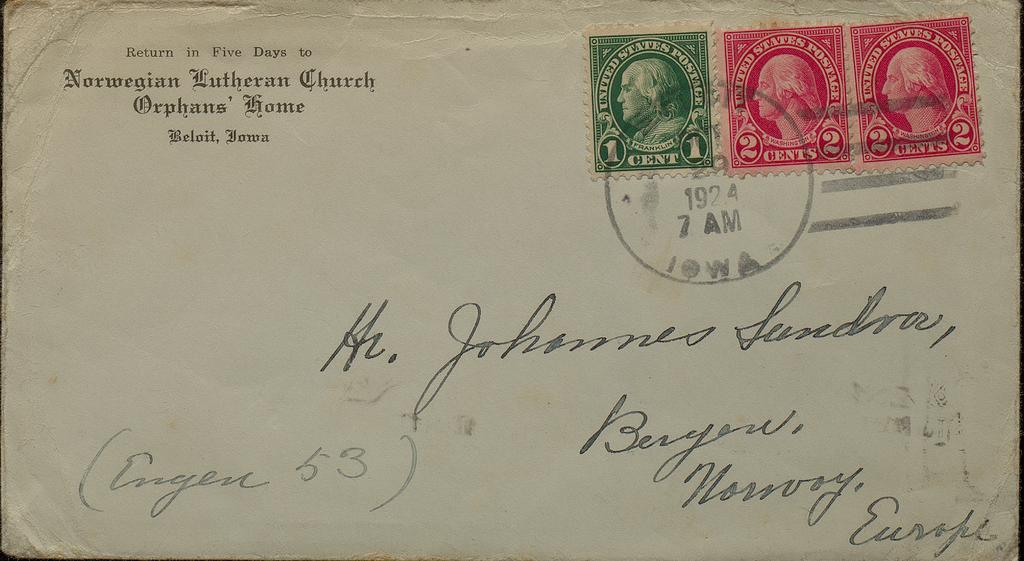 Return in Five Days to
Norwegian Lutheran Church
Orphans' Home
Beloit, Iowa
UNITED STATES POSTAGE
FRANKLIN
1 CENT 1
UNITED STATES POSTAGE
WASHINGTON
2 CENTS 2
UNITED STATES POSTAGE
WASHINGTON
2 CENTS 2
1924
7 AM
IOWA
Hr. Johannes
Bergen.
Norway.
Europe
(Engen 53)